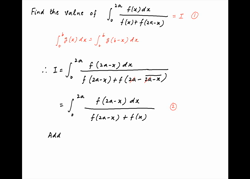 Find the value of ∫₀²ᵃ f(x)dx / f(x)+f(2a-x) = I ①
∫₀ᵇ g(x)dx = ∫₀ᵇ g(b-x)dx
∴ I = ∫₀²ᵃ f(2a-x) dx / f(2a-x) + f(2a-(2a-x))
= ∫₀²ᵃ f(2a-x) dx / f(2a-x) + f(x) ②
Add